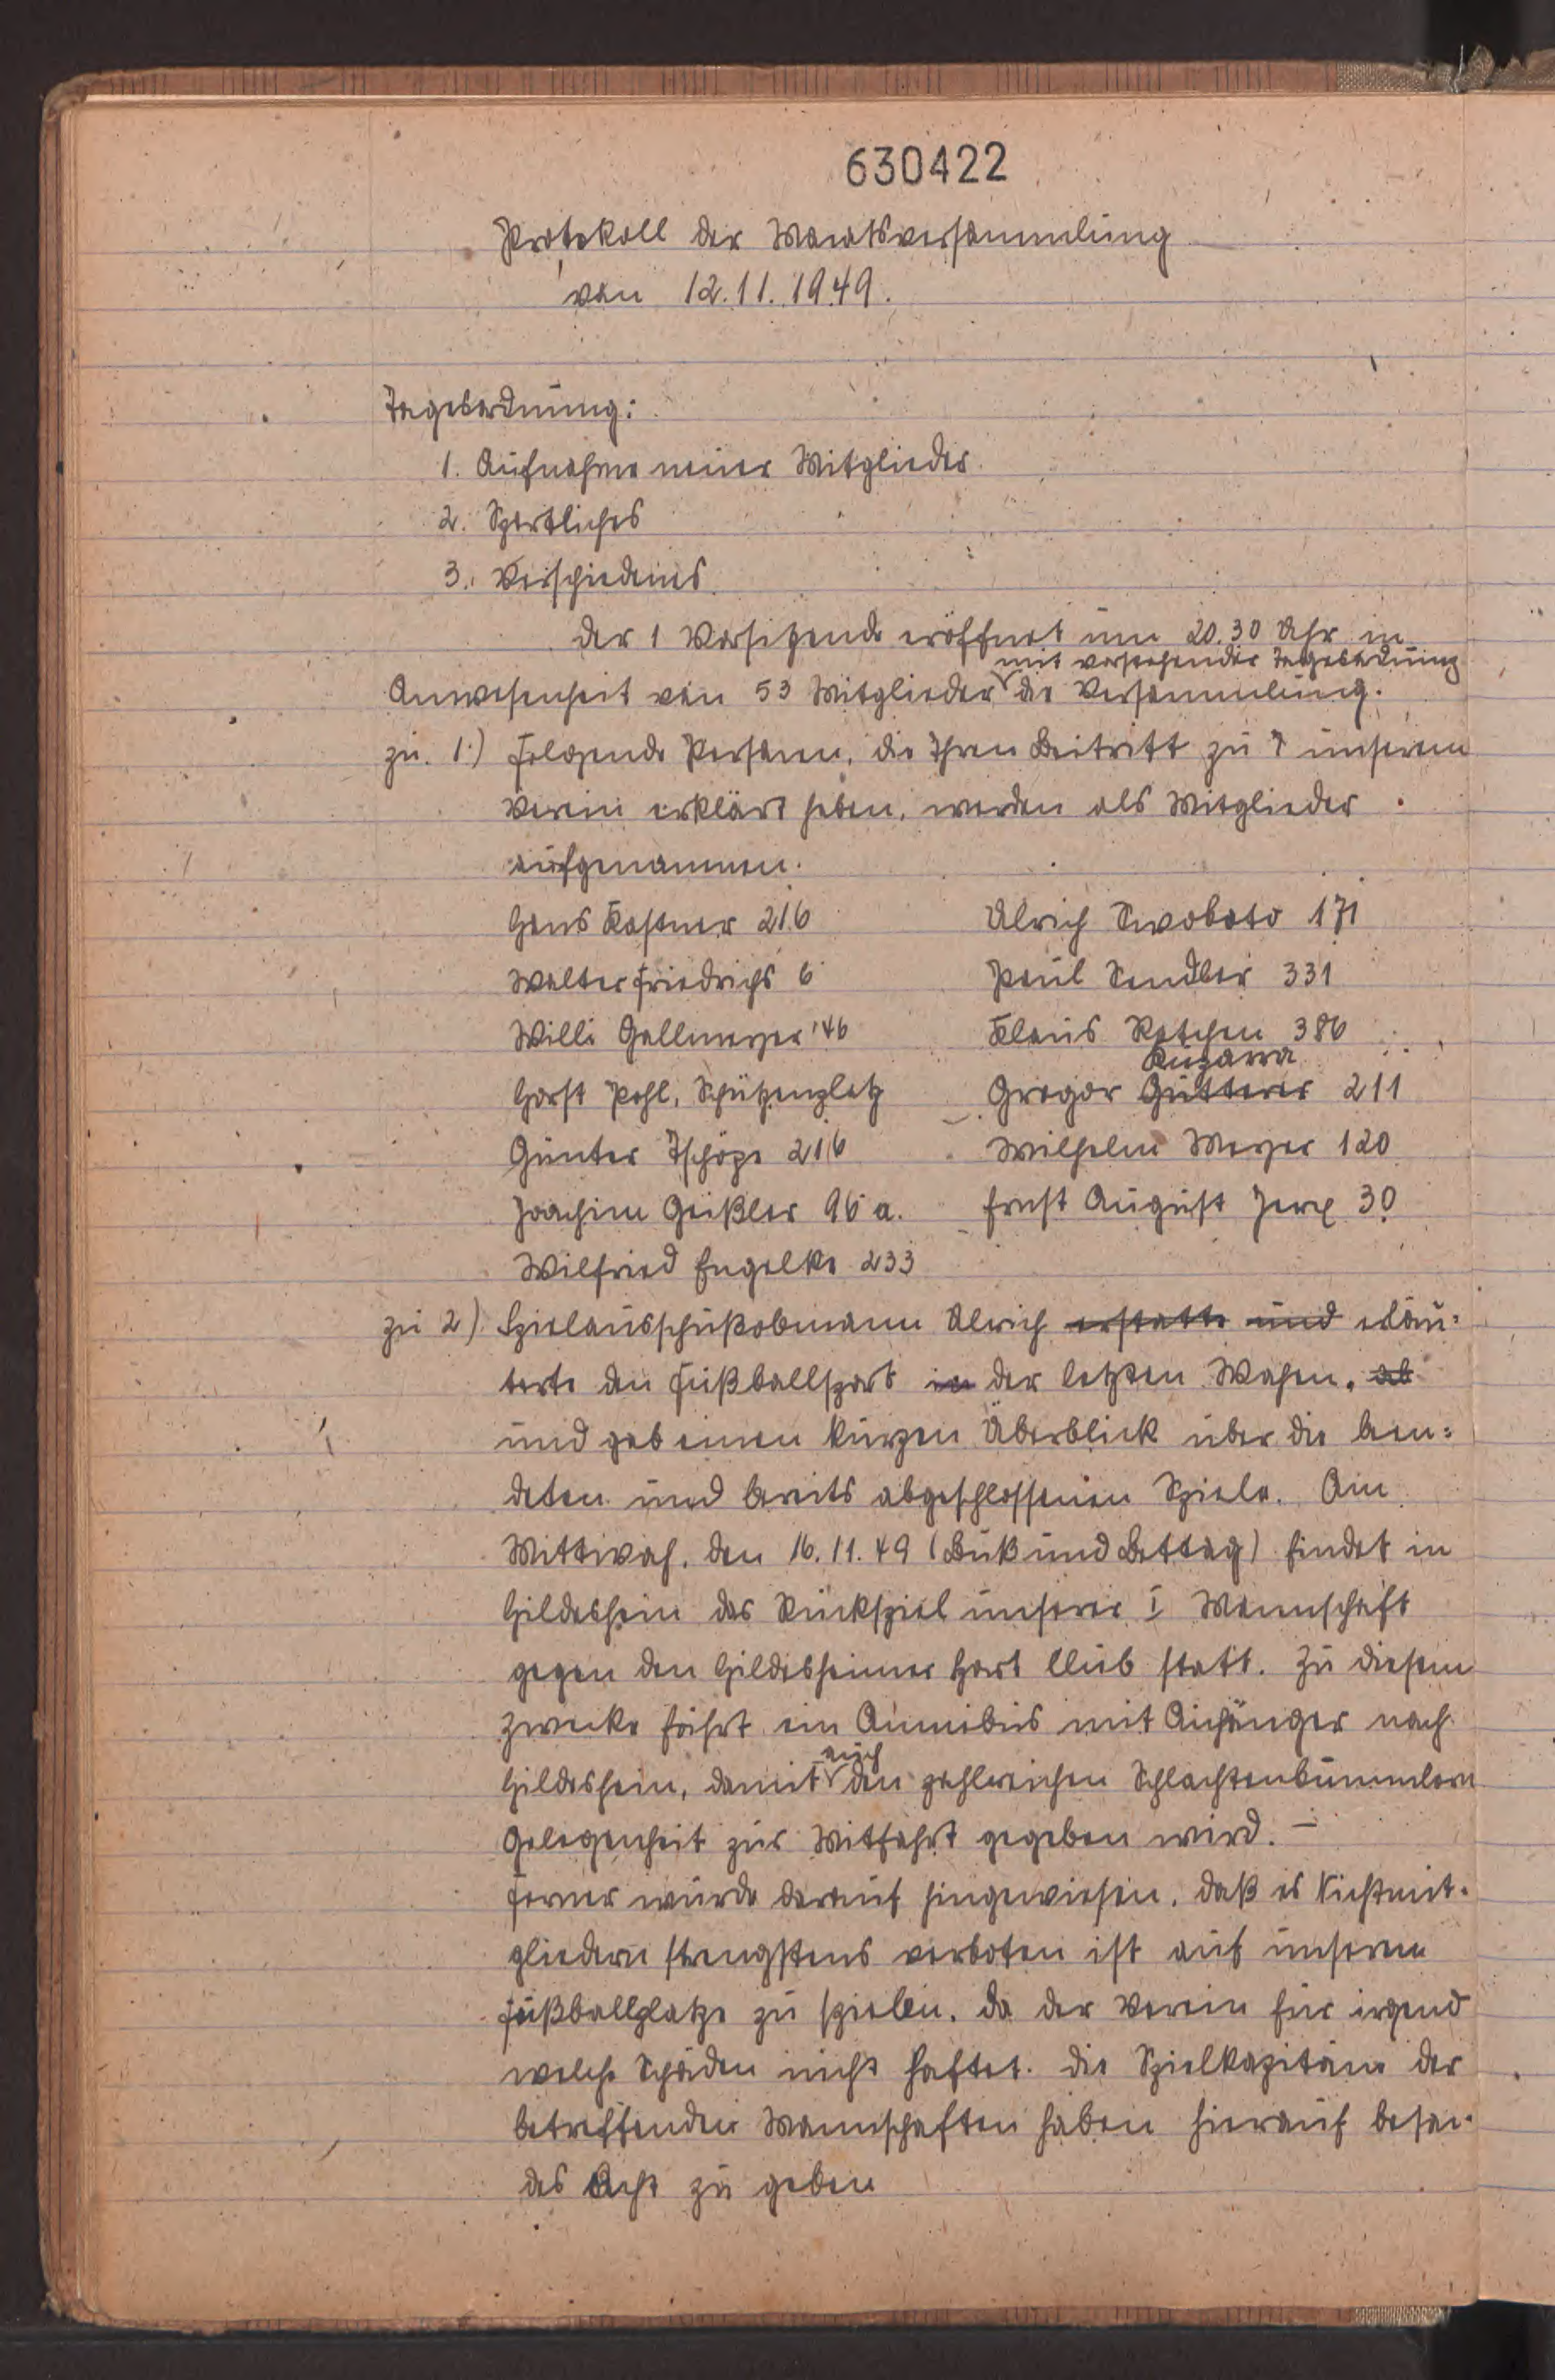 630422
Protokoll der Monatsversammlung
von 12.11.1949.
Tagesordnung:
1. Aufnahme neuer Mitglieder
2. Sportliches
3. Verschiedenes
Der 1 Vorsitzende eröffnet um 20.30 Uhr in
mit vorstehender Tagesordnung
Anwesenheit von 53 Mitglieder die Versammlung.
zu. 1.) Folgende Personen, die Ihren Beitritt zu unserem
Verein erklärt haben, werden als Mitglieder
aufgenommen.
Hans Kastner 216 Ulrich Swoboto 171
Walter Friedrichs 6 Paul Sendler 331
Willi Gallmeyer 146 Klaus Ratchen 386
Kuzawa
Horst Pohl, Schützenplatz Gregor Gütterer 211
Günter Tschöpe 216 Wilhelm Meyer 120
Joachim Geißler 96 a. Ernst August Jerx 30
Wilfried Engelke 233
zu 2) Spielausschußobmann Ulrich erstatte und erläu=
terte den Fußballsport in der letzten Wochen, ab
und gab einen kurzen Überblick über die been=
deten und bereits abgeschlossenen Spiele. Am
Mittwoch, den 16.11.49 (Buß und Bettag) findet in
Hildesheim das Rückspiel unserer I Mannschaft
gegen den Hildesheimer Sport Club statt. Zu diesem
Zwecke fährt ein Omnibus mit Anhänger nach
auch
Hildesheim, damit den zahlreichen Schlachtenbummlern
Gelegenheit zur Mitfahrt gegeben wird. –
Ferner wurde darauf hingewiesen, daß es Nichtmit-
gliedern strengstens verboten ist auf unserem
Fußballplatze zu spielen, da der Verein für irgend
welche Schäden nicht haftet. Die Spielkapitäne der
betreffenden Mannschaften haben hierauf beson-
des Acht zu geben